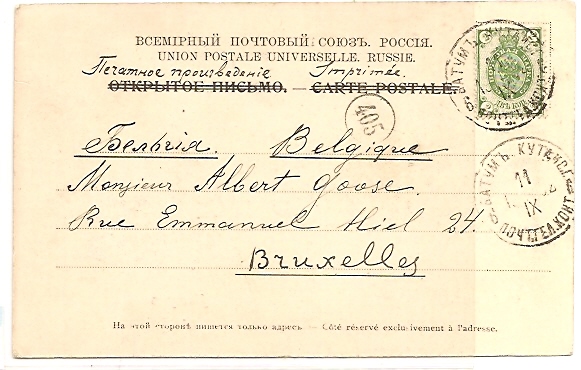 ВСЕМІРНЫЙ ПОЧТОВЫЙ СОЮЗЪ. РОССІЯ.
UNION POSTALE UNIVERSELLE. RUSSIE.
Печатное произведеніе Imprimée.
ОТКРЫТОЕ ПИСЬМО. — CARTE POSTALE.
405
Бельгія. Belgique
Monsieur Albert Goose.
Rue Emmanuel Hiel 24.
Bruxelles
БАТУМЪ КУТАИС.
11
IX
ПОЧТ.ТЕЛ.КОНТ.
На этой сторонѣ пишется только адресъ. — Côté réservé exclusivement à l'adresse.